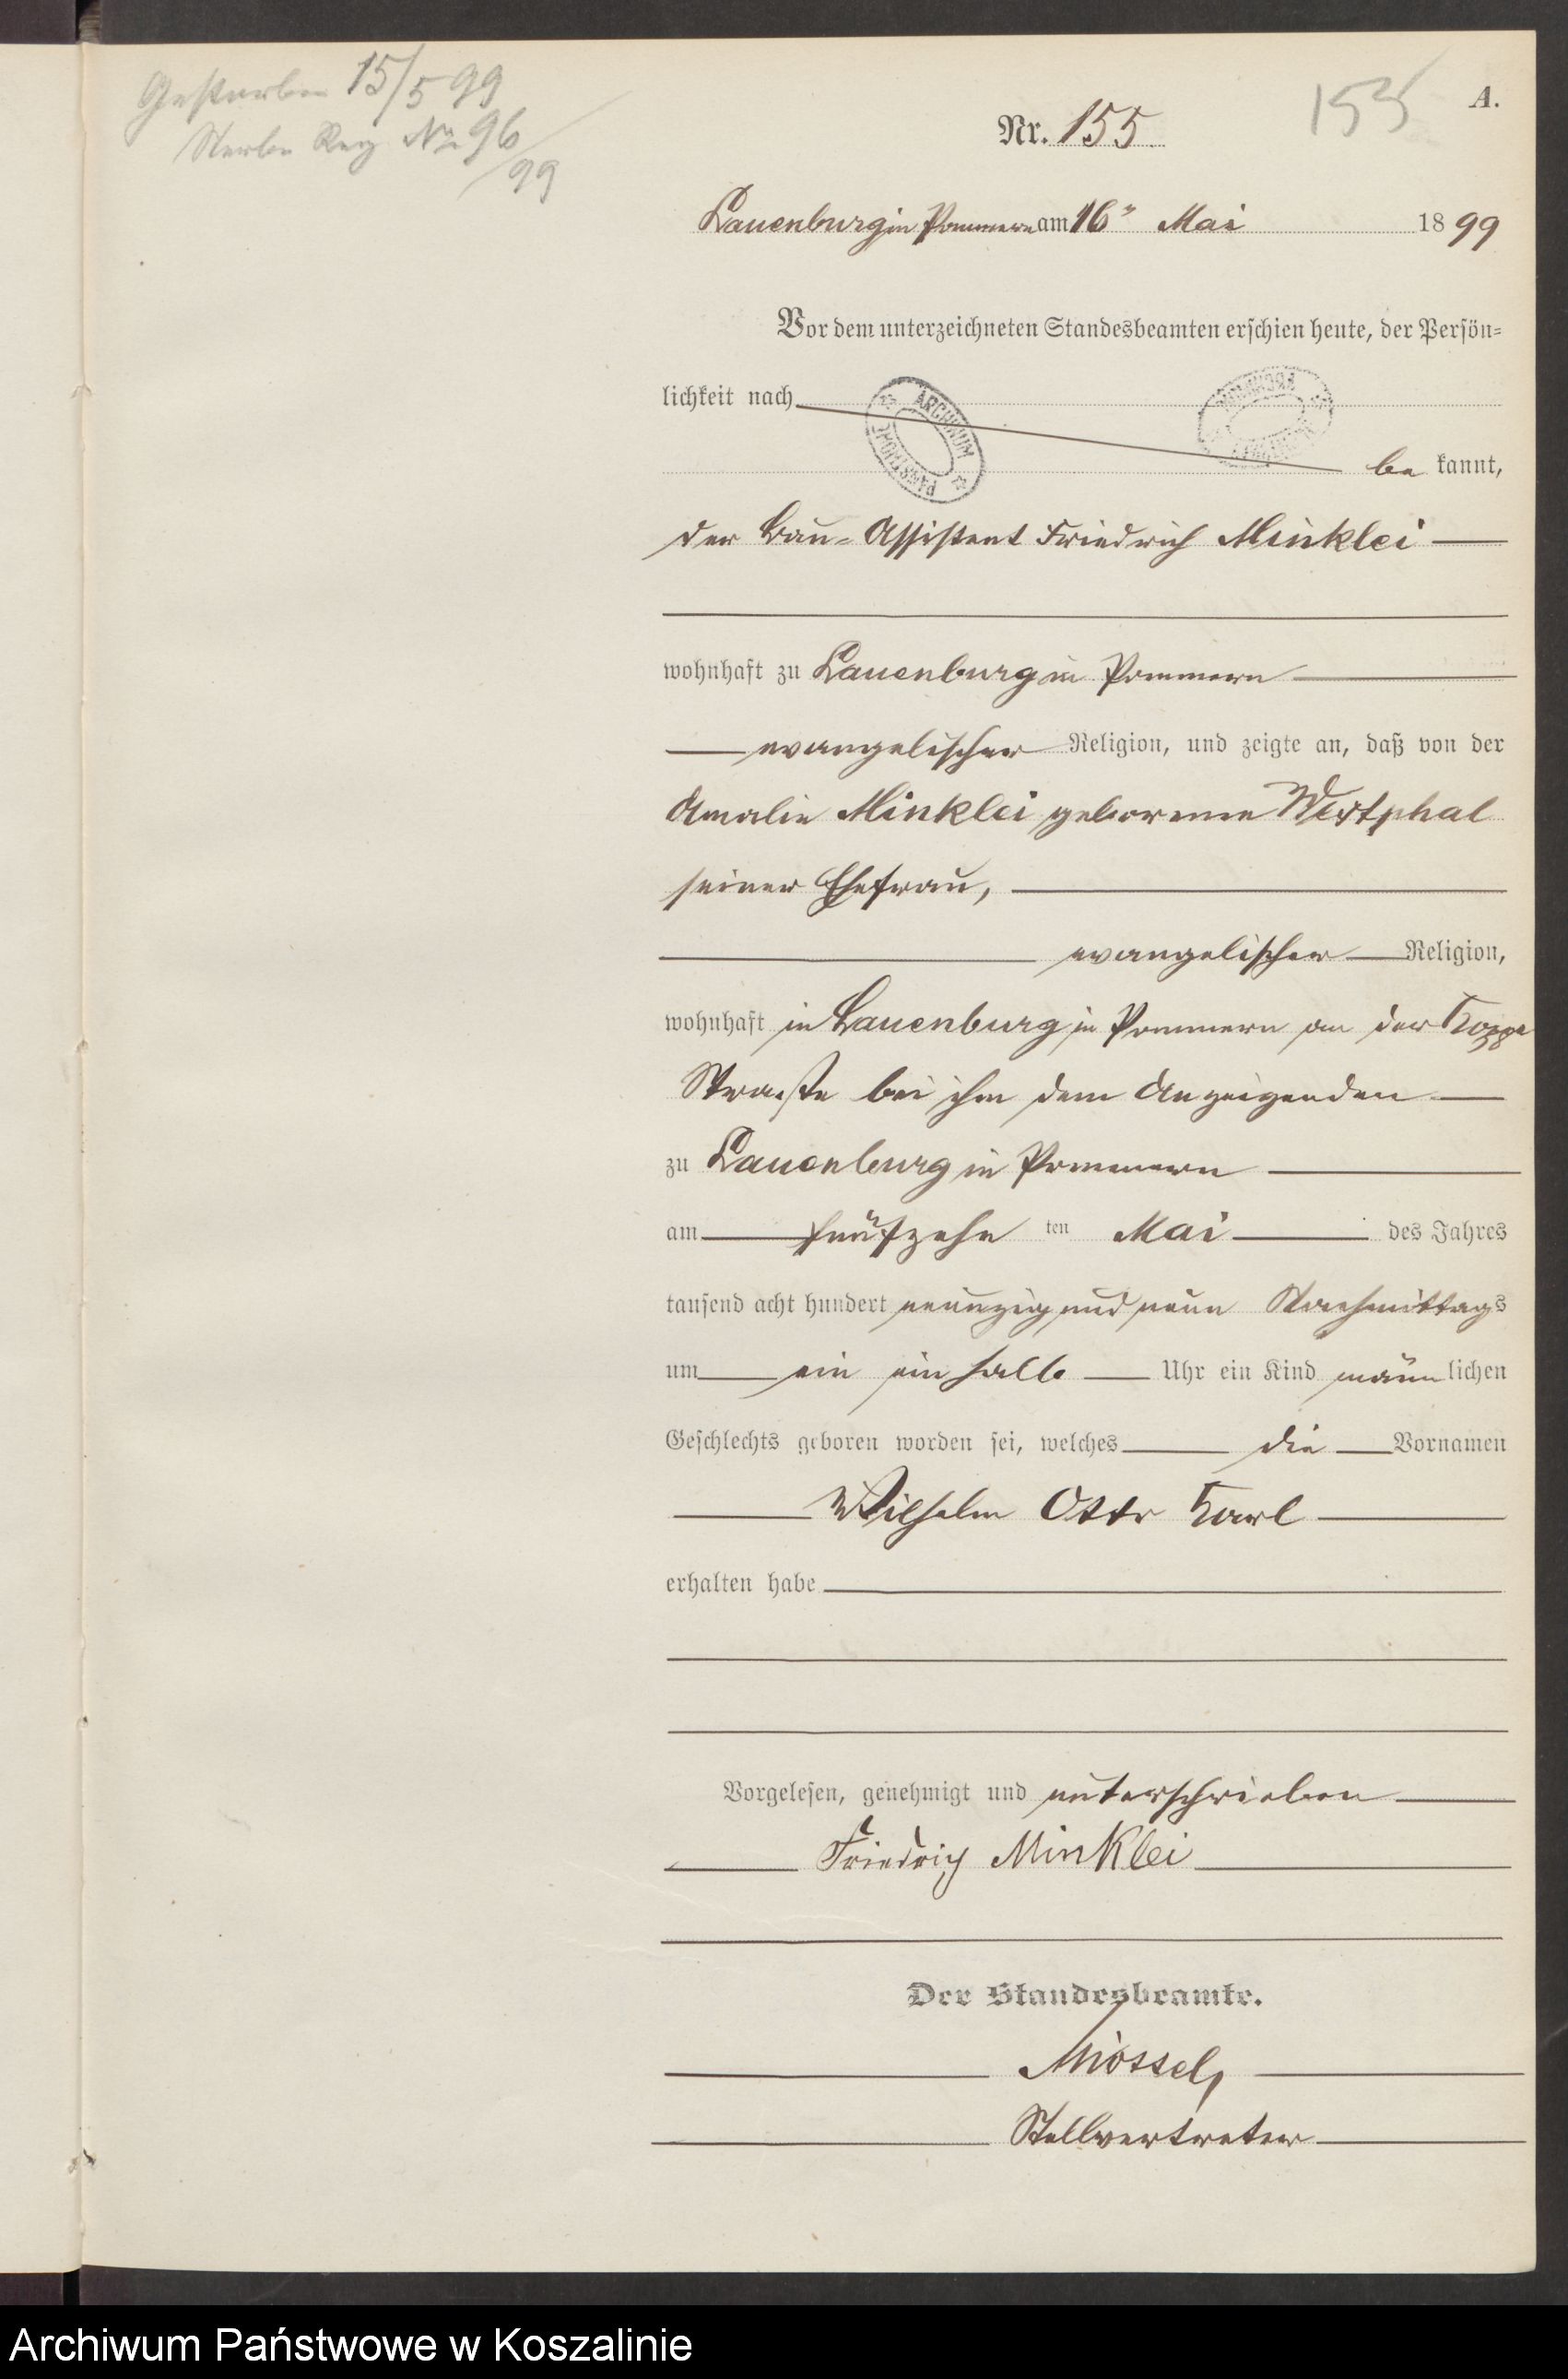 Gestorben 15/5 99
Sterbe Reg No 96/99
155
A.
Nr. 155
Lauenburg in Pommern am 16ten Mai 1899
Vor dem unterzeichneten Standesbeamten erschien heute, der Persön-
lichkeit nach
ARCHIWUM PAŃSTWOWE
be kannt,
der Bau-Assistent Friedrich Minklei
wohnhaft zu Lauenburg in Pommern
evangelischer Religion, und zeigte an, daß von der
Amalie Minklei geborenen Westphal
seiner Ehefrau,
evangelischer Religion,
wohnhaft in Lauenburg in Pommern an der
Straße bei ihm dem Anzeigenden
zu Lauenburg in Pommern
am fünfzehn ten Mai des Jahres
tausend acht hundert neunzig und neun Nachmittags
um ein ein halb Uhr ein Kind männlichen
Geschlechts geboren worden sei, welches die Vornamen
Wilhelm Otto Karl
erhalten habe
Vorgelesen, genehmigt und unterschrieben
Friedrich Minklei
Der Standesbeamte.
Stellvertreter
Archiwum Państwowe w Koszalinie